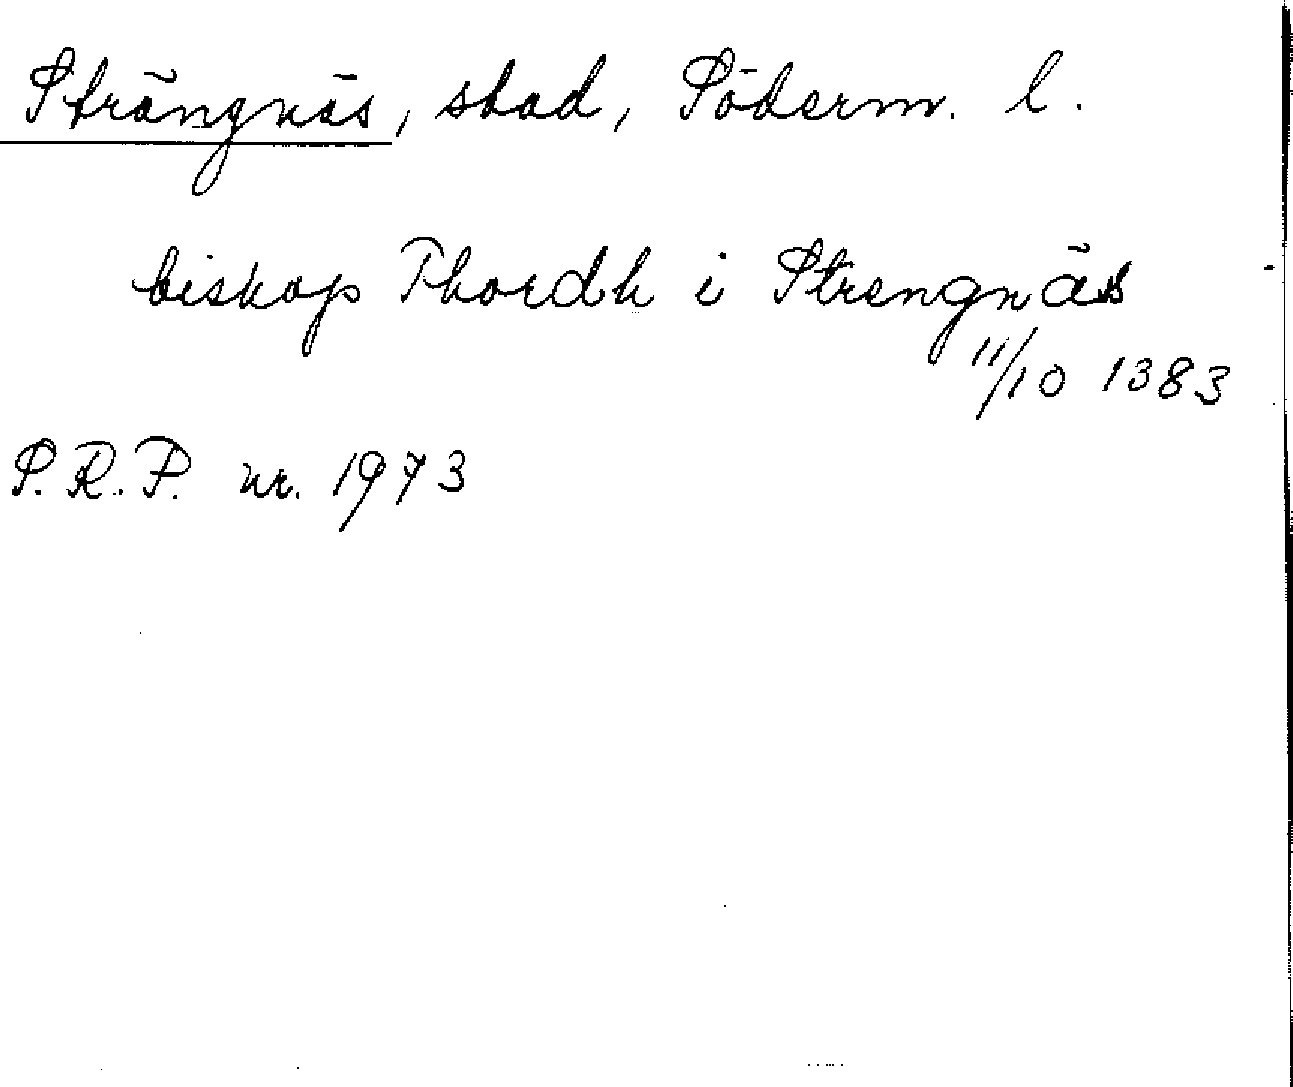 Strängnäs, stad, Söderm. l.
biskop Thordh i Strengnäs
11/10 1383
S.R.P. nr. 1973